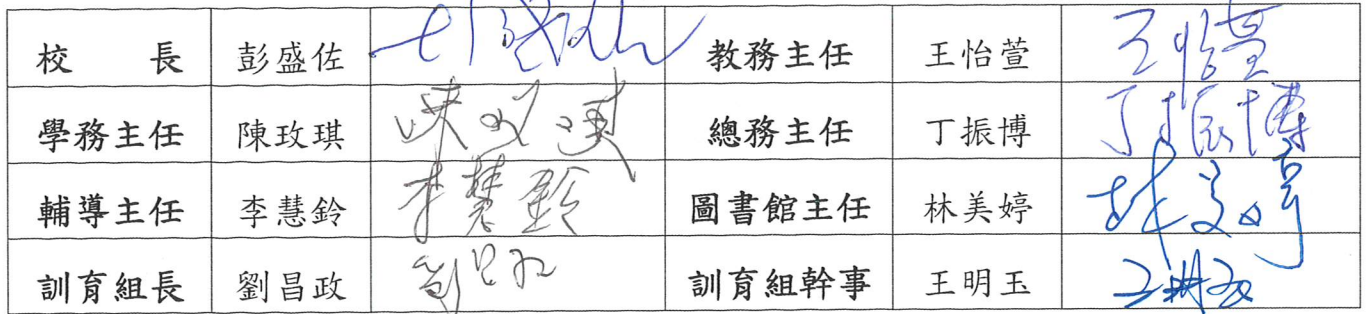 校 長 彭盛佐 教務主任 王怡萱 王怡萱
學務主任 陳玫琪 陳玫琪 總務主任 丁振博 丁振博
輔導主任 李慧鈴 李慧鈴 圖書館主任 林美婷 林美婷
訓育組長 劉昌政 訓育組幹事 王明玉